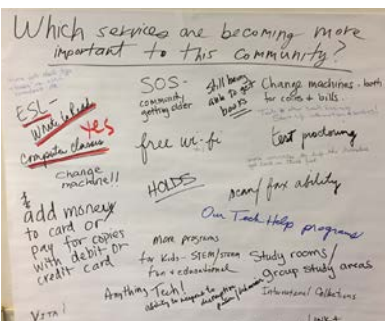 Which services are becoming more
important to this community?
ESL-
Write to Read
computer classes
Yes
change
machine!!
$
add money
to card or
pay for copies
with debit or
credit card
VITA!
SOS-
community
getting older
free wi-fi
HOLDS
more programs
for Kids - STEM/STEAM
fun & educational
Anything Tech!
ability to respond to
still being
able to get
books
Change machines - both
for coins & bills.
test proctoring
scan/fax ability
Our Tech Help programs
Study rooms/
group study areas
International Collections